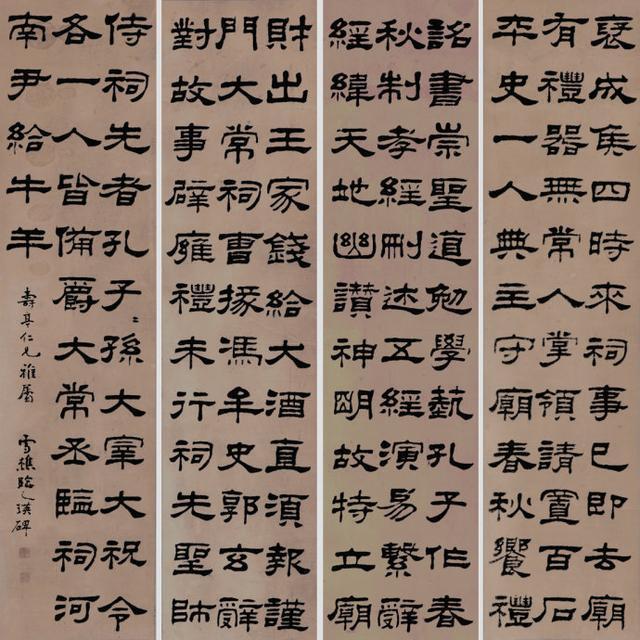 褒成侯四時來祠事已即去廟
有禮器無常人掌領請置百石
卒史一人典主守廟春秋饗禮
詔書崇聖道勉學藝孔子作春
秋制孝經刪述五經演易繫辭
經緯天地幽讚神明故特立廟
財出王家錢給大酒直須報謹
門大常祠曹掾馮牟史郭玄辭
對故事辟廱禮未行祠先聖師
侍祠先者孔子〻孫大宰大祝令
各一人皆備爵大常丞臨祠河
南尹給牛羊
壽仁兄雅屬 雪樵臨乙瑛碑